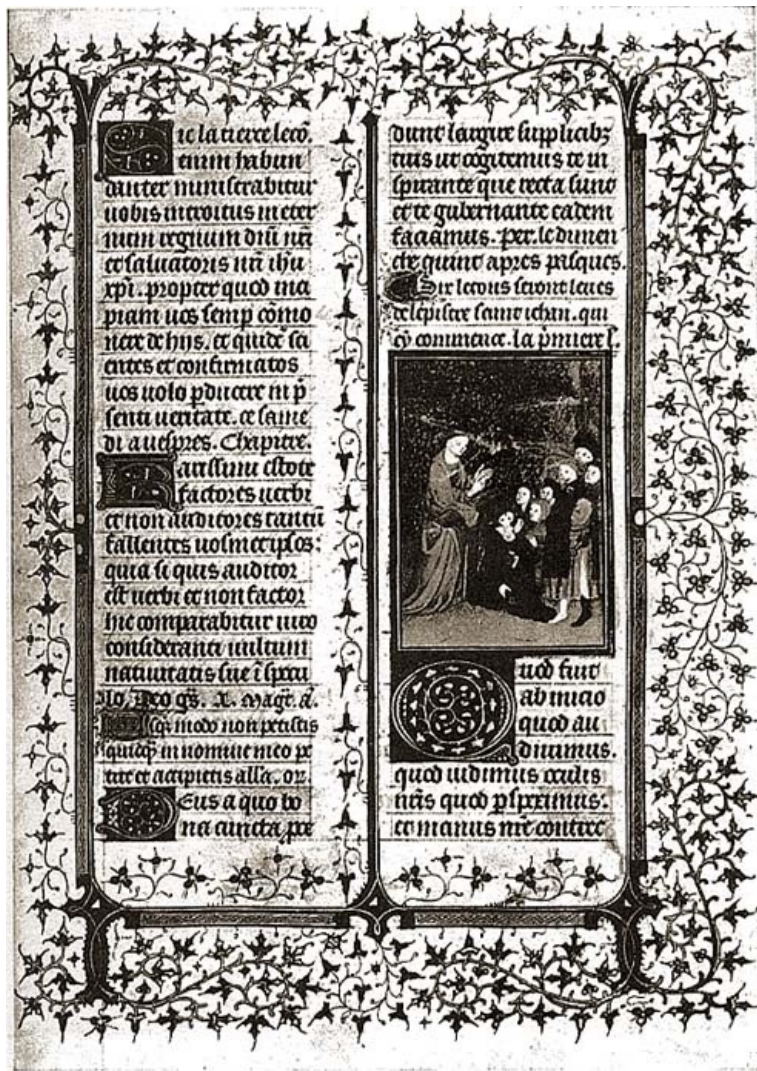 Sic la tierce leco.
enim habun
danter ministrabitur
uobis introitus in eter
num regnum dni nri
et saluatoris nri ihu
xpi. propter quod inci
piam uos semp cōmo
nere de hijs. et quidē sci
entes et confirmatos
uos uolo pducere in p
senti ueritate. ce same
di a uespres. Chapitre.
Karissimi estote
factores uerbi
et non auditores tantū
fallentes uosmetipsos:
quia si quis auditor
est uerbi et non factor
hic comparabitur uiro
consideranti uultum
natiuitatis sue ī specu
lo. Deo gs. x. Magt. a.
modo non petistis
quicqz in nomine meo pe
tite et accipietis alla. or.
Deus a quo bo
na cuncta pce
dunt largire supplicibz
tuis ut cogitemus te in
spirante que recta sunt
et te gubernante eadem
faciamus. Per. le dimen
che quint apres pasques.
Six lecons seront leues
de lepistre saint iehan. qui
cy commence. la pmiere l.
Quod fuit
ab inicio
quod au
diuimus.
quod uidimus oculis
nris quod pspeximus.
et manus nre contrec